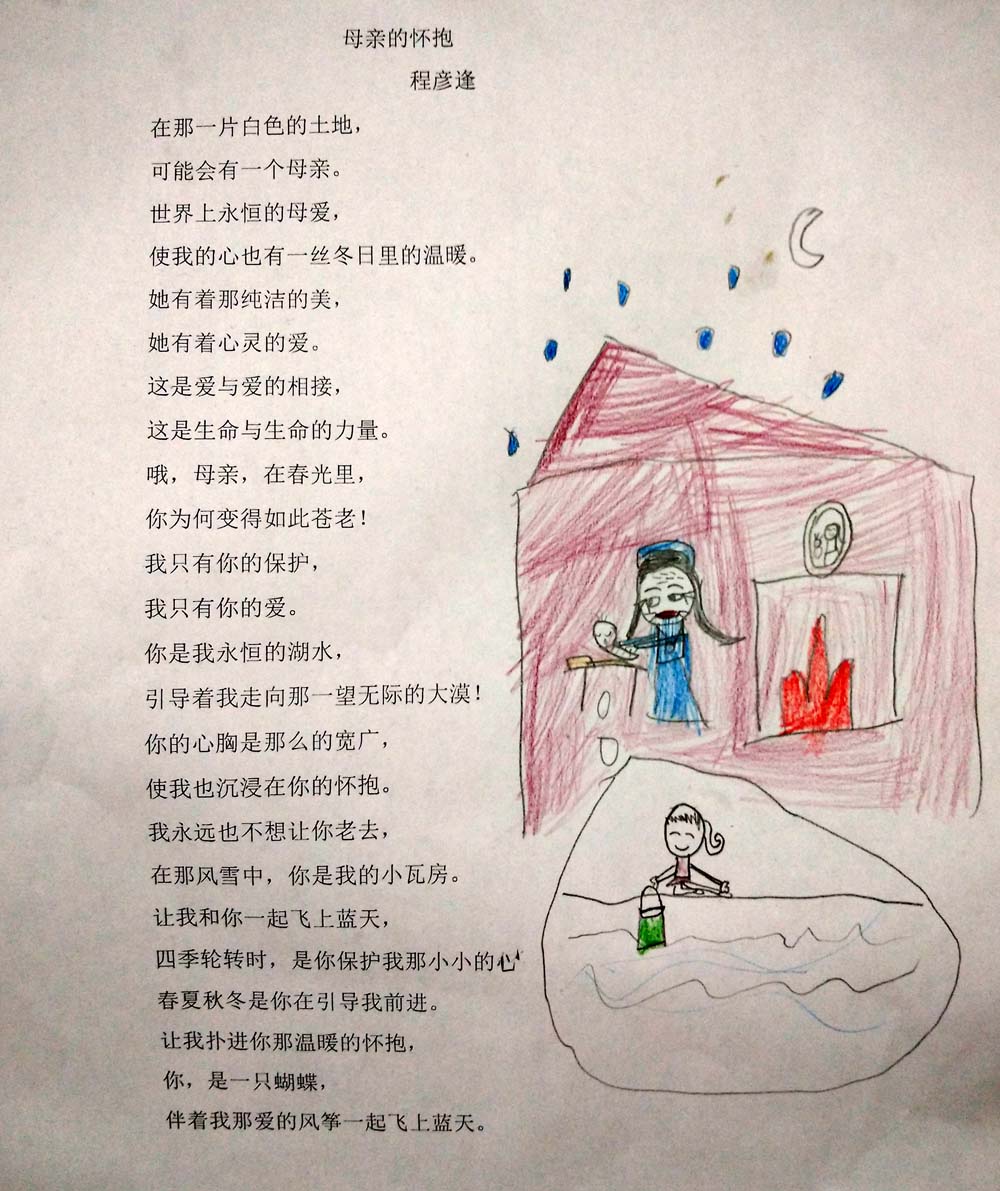 母亲的怀抱
程彦逢
在那一片白色的土地，
可能会有一个母亲。
世界上永恒的母爱，
使我的心也有一丝冬日里的温暖。
她有着那纯洁的美，
她有着心灵的爱。
这是爱与爱的相接，
这是生命与生命的力量。
哦，母亲，在春光里，
你为何变得如此苍老！
我只有你的保护，
我只有你的爱。
你是我永恒的湖水，
引导着我走向那一望无际的大漠！
你的心胸是那么的宽广，
使我也沉浸在你的怀抱。
我永远也不想让你老去，
在那风雪中，你是我的小瓦房。
让我和你一起飞上蓝天，
四季轮转时，是你保护我那小小的心
春夏秋冬是你在引导我前进。
让我扑进你那温暖的怀抱，
你，是一只蝴蝶，
伴着我那爱的风筝一起飞上蓝天。